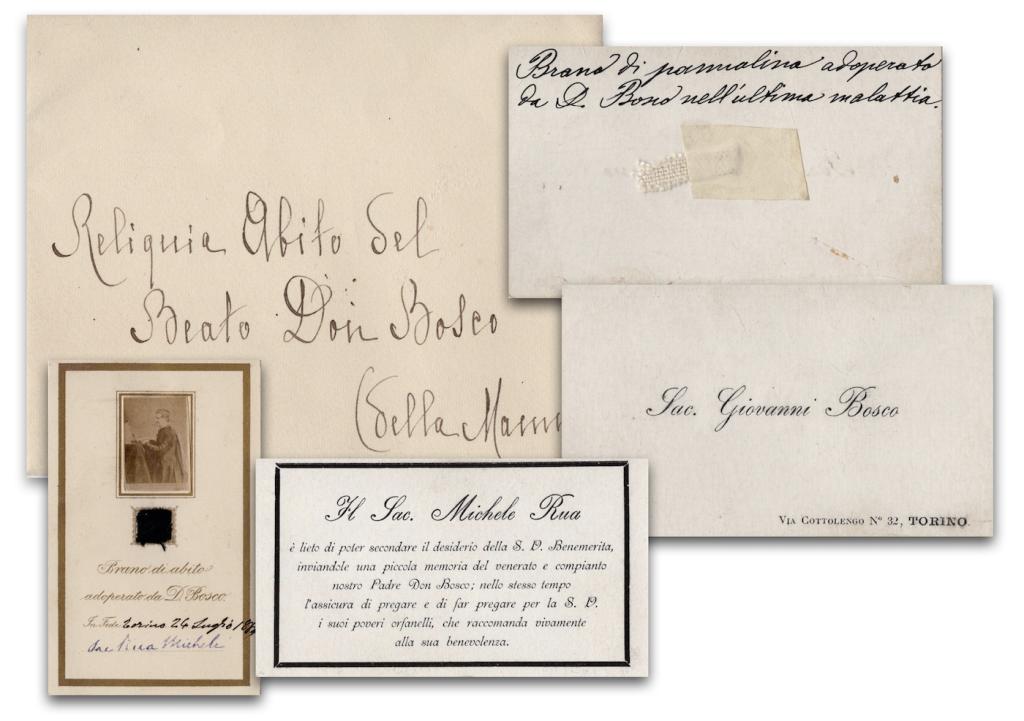 Reliquia Abito del
Beato Don Bosco
(della
Brano di pannolino adoperato
da D. Bosco nell'ultima malattia.
Sac. Giovanni Bosco
Via Cottolengo Nº 32, TORINO.
Brano di abito
adoperato da D. Bosco.
In Fede Torino 24 Luglio
Sac Rua Michele
Il Sac. Michele Rua
è lieto di poter secondare il desiderio della S. V. Benemerita,
inviandole una piccola memoria del venerato e compianto
nostro Padre Don Bosco; nello stesso tempo
l'assicura di pregare e di far pregare per la S. V.
i suoi poveri orfanelli, che raccomanda vivamente
alla sua benevolenza.